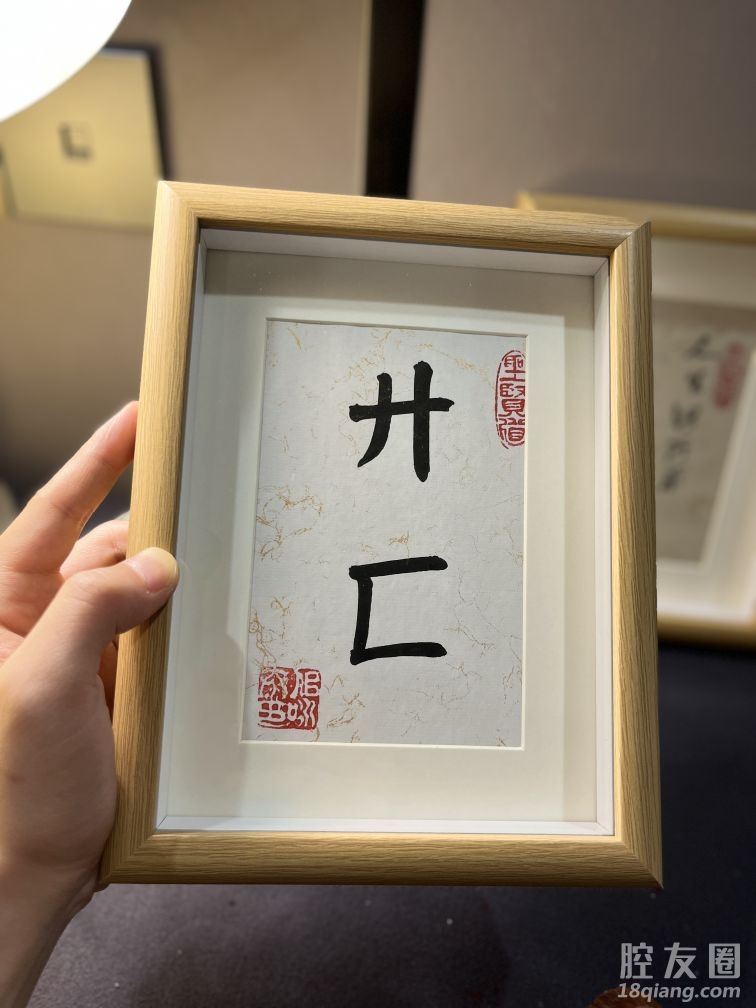 廾
匚
聖賢道
腔友圈
18qiang.com